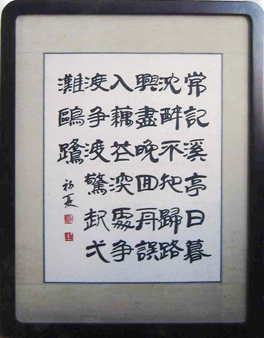 常記溪亭日暮
沈醉不知歸路
興盡晚回舟誤
入藕花深處爭
渡爭渡驚起弌
灘鷗鷺
初夏